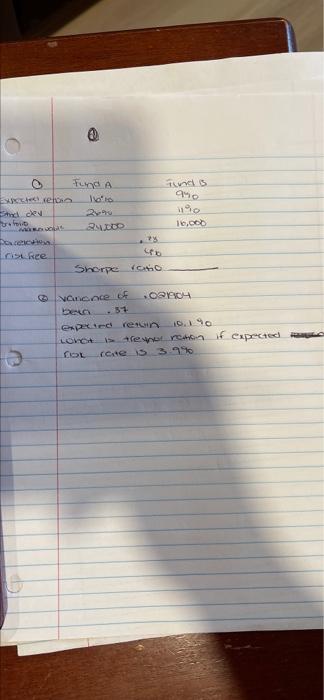 ①
① Fund A Fund B
Expected return 16% 9%
Stnd dev 11%
24,000 16,000
Correlation .28
risk free 4%
Sharpe ratio
② variance of .021904
beta .87
expected return 10.1%
what is treynor ration if expected
risk rate is 3.9%